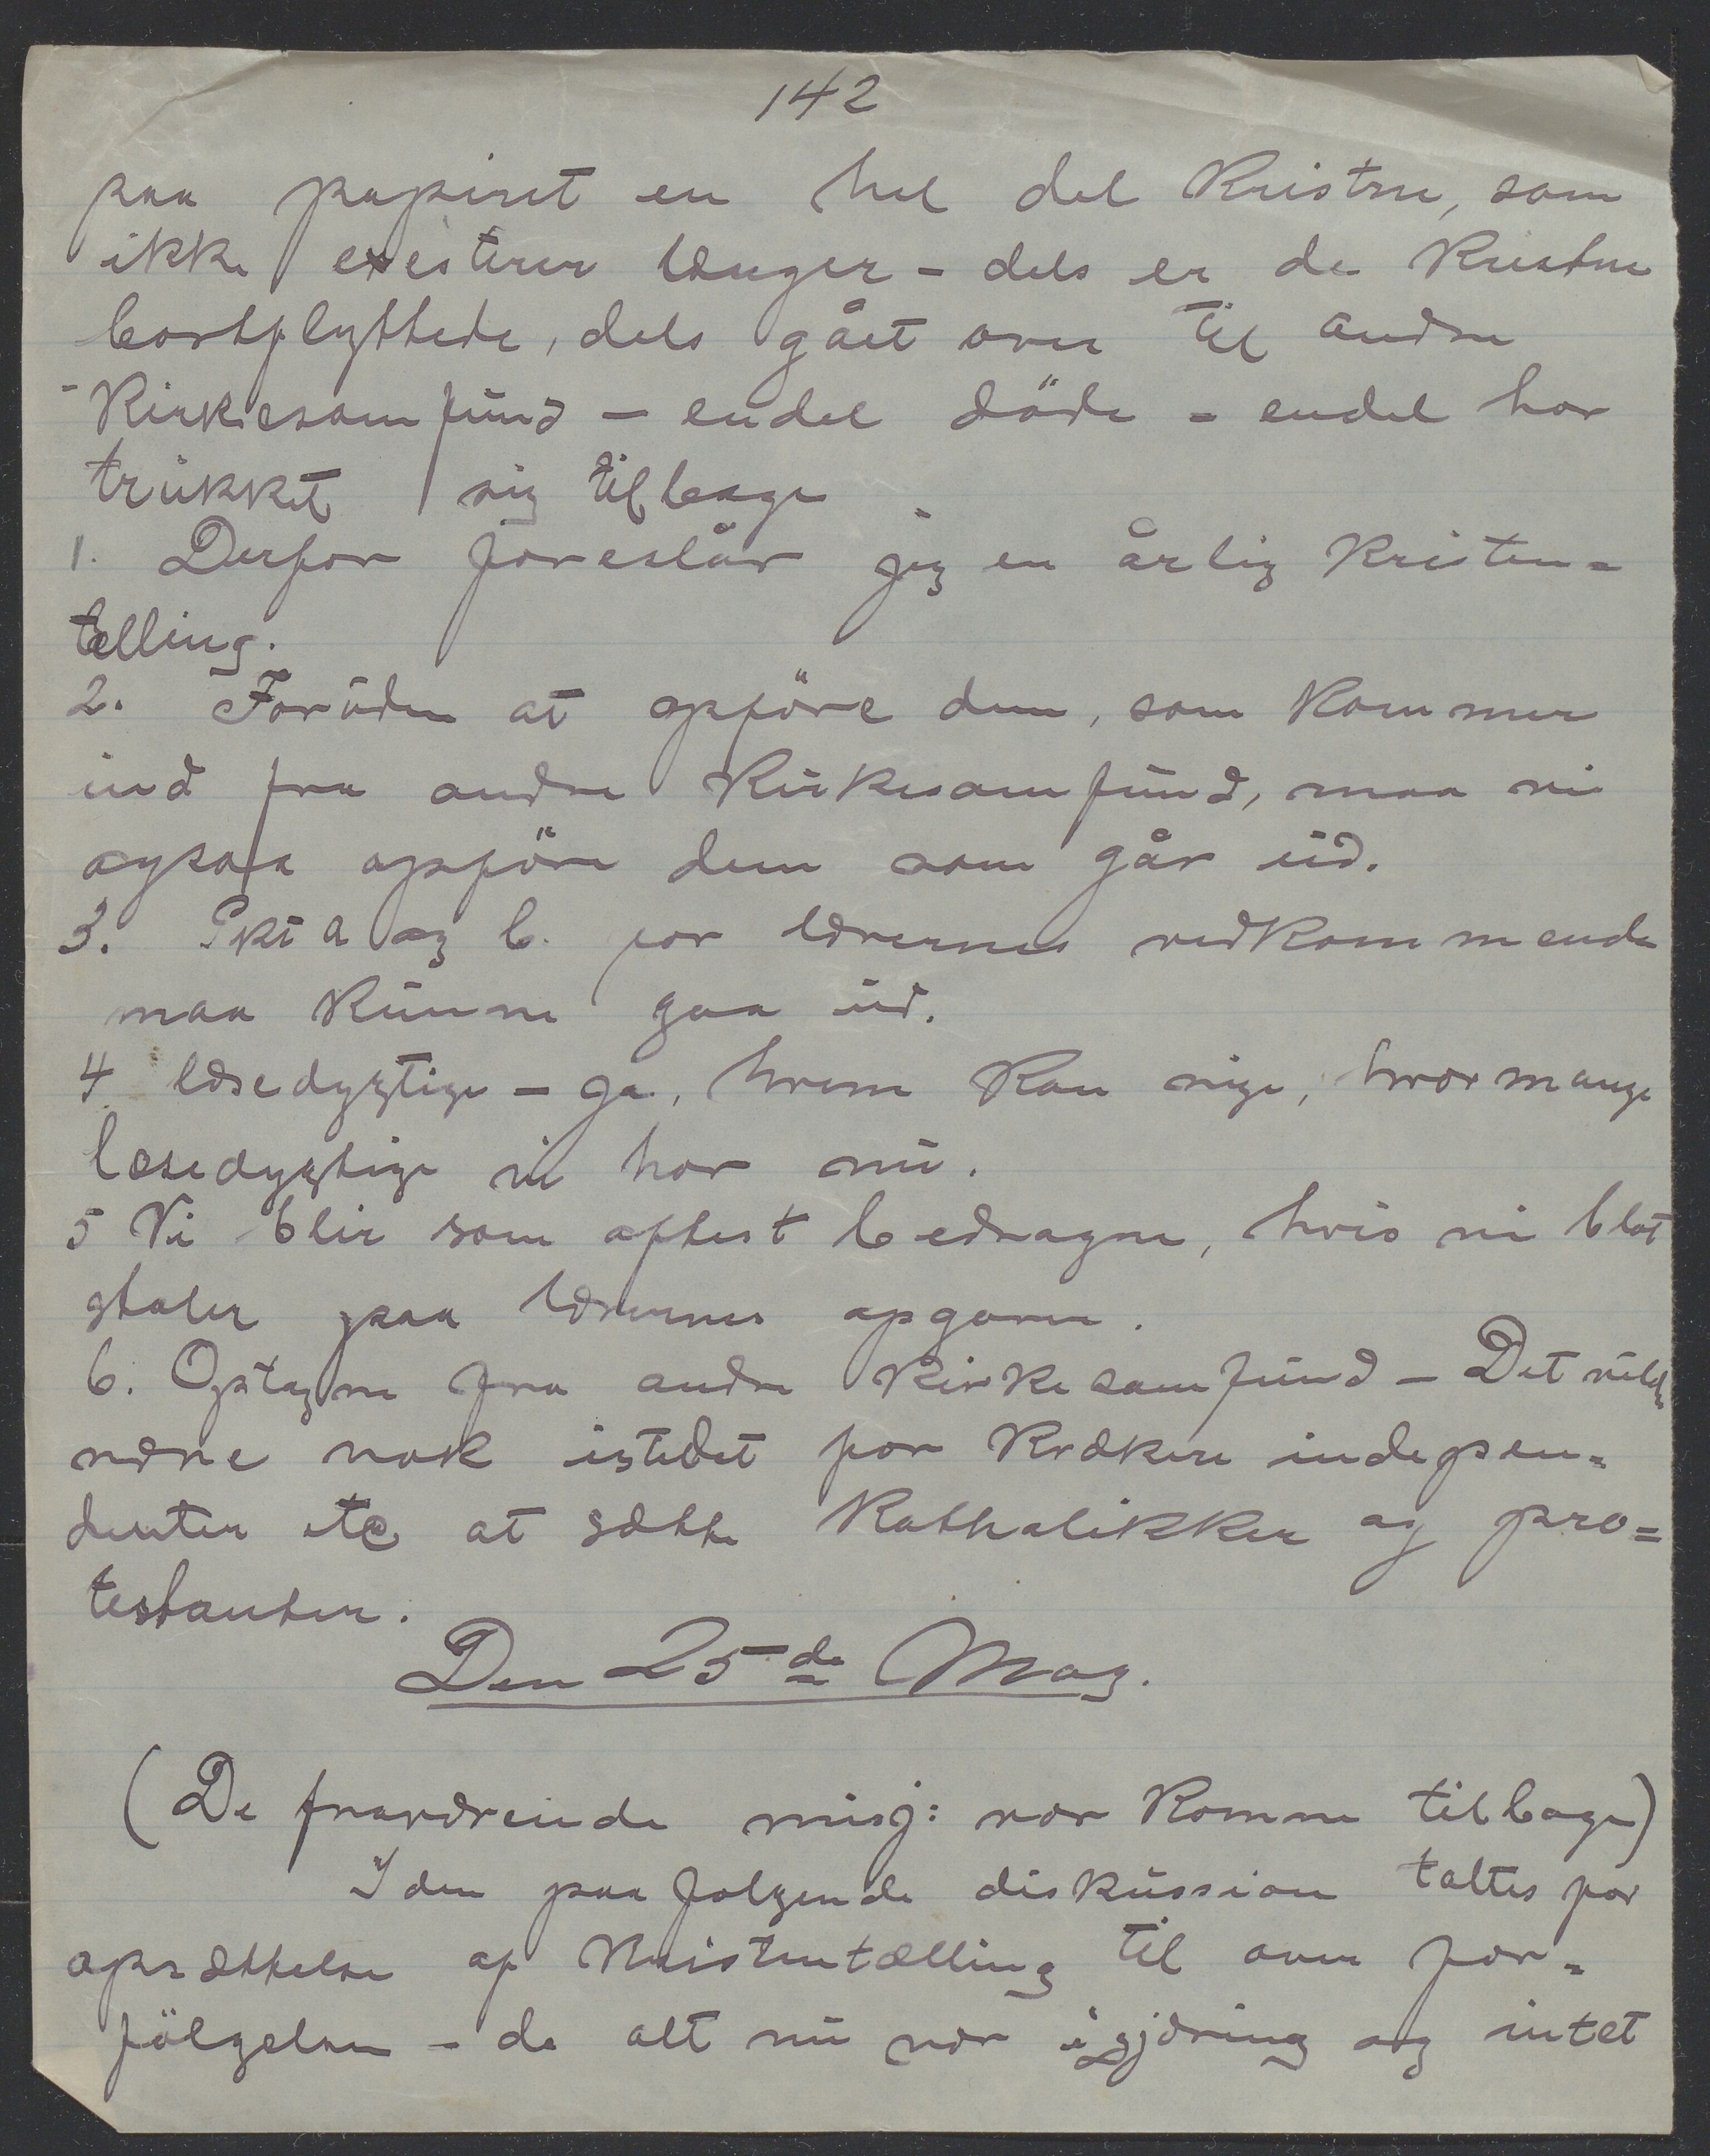 142
paa papiret en hel del Kristne, som
ikke existerer længer - dels er de Kristne
bortflyttede, dels gået over til andre
Kirkesamfund - endel döde - endel har
trukket sig tilbage
1. Derfor foreslår jeg en årlig Kristen=
tælling.
2. Foruden at opföre dem, som kommer
ind fra andre Kirkesamfund, maa vi
ogsaa opföre dem som går ud.
3. Pkt a og b. for lærernes vedkommende
maa kunne gaa ud.
4 læsedygtige - ja, hvem kan sige, hvormange
læsedygtige vi har nu.
5 Vi blir som oftest bedragne, hvis vi blot
stoler paa lærernes opgaver.
6. Optagne fra andre Kirkesamfund - Det vilde
være nok istedet for Kvækere indepen=
denter etc at sætte Katholikker og pro=
testanter.
Den 25de May.
(De fraværende misj: var komne tilbage)
I den paafolgende diskussion taltes for
opsættelse af Kristentælling til over for=
fölgelsen - da alt nu var i gjæring og intet